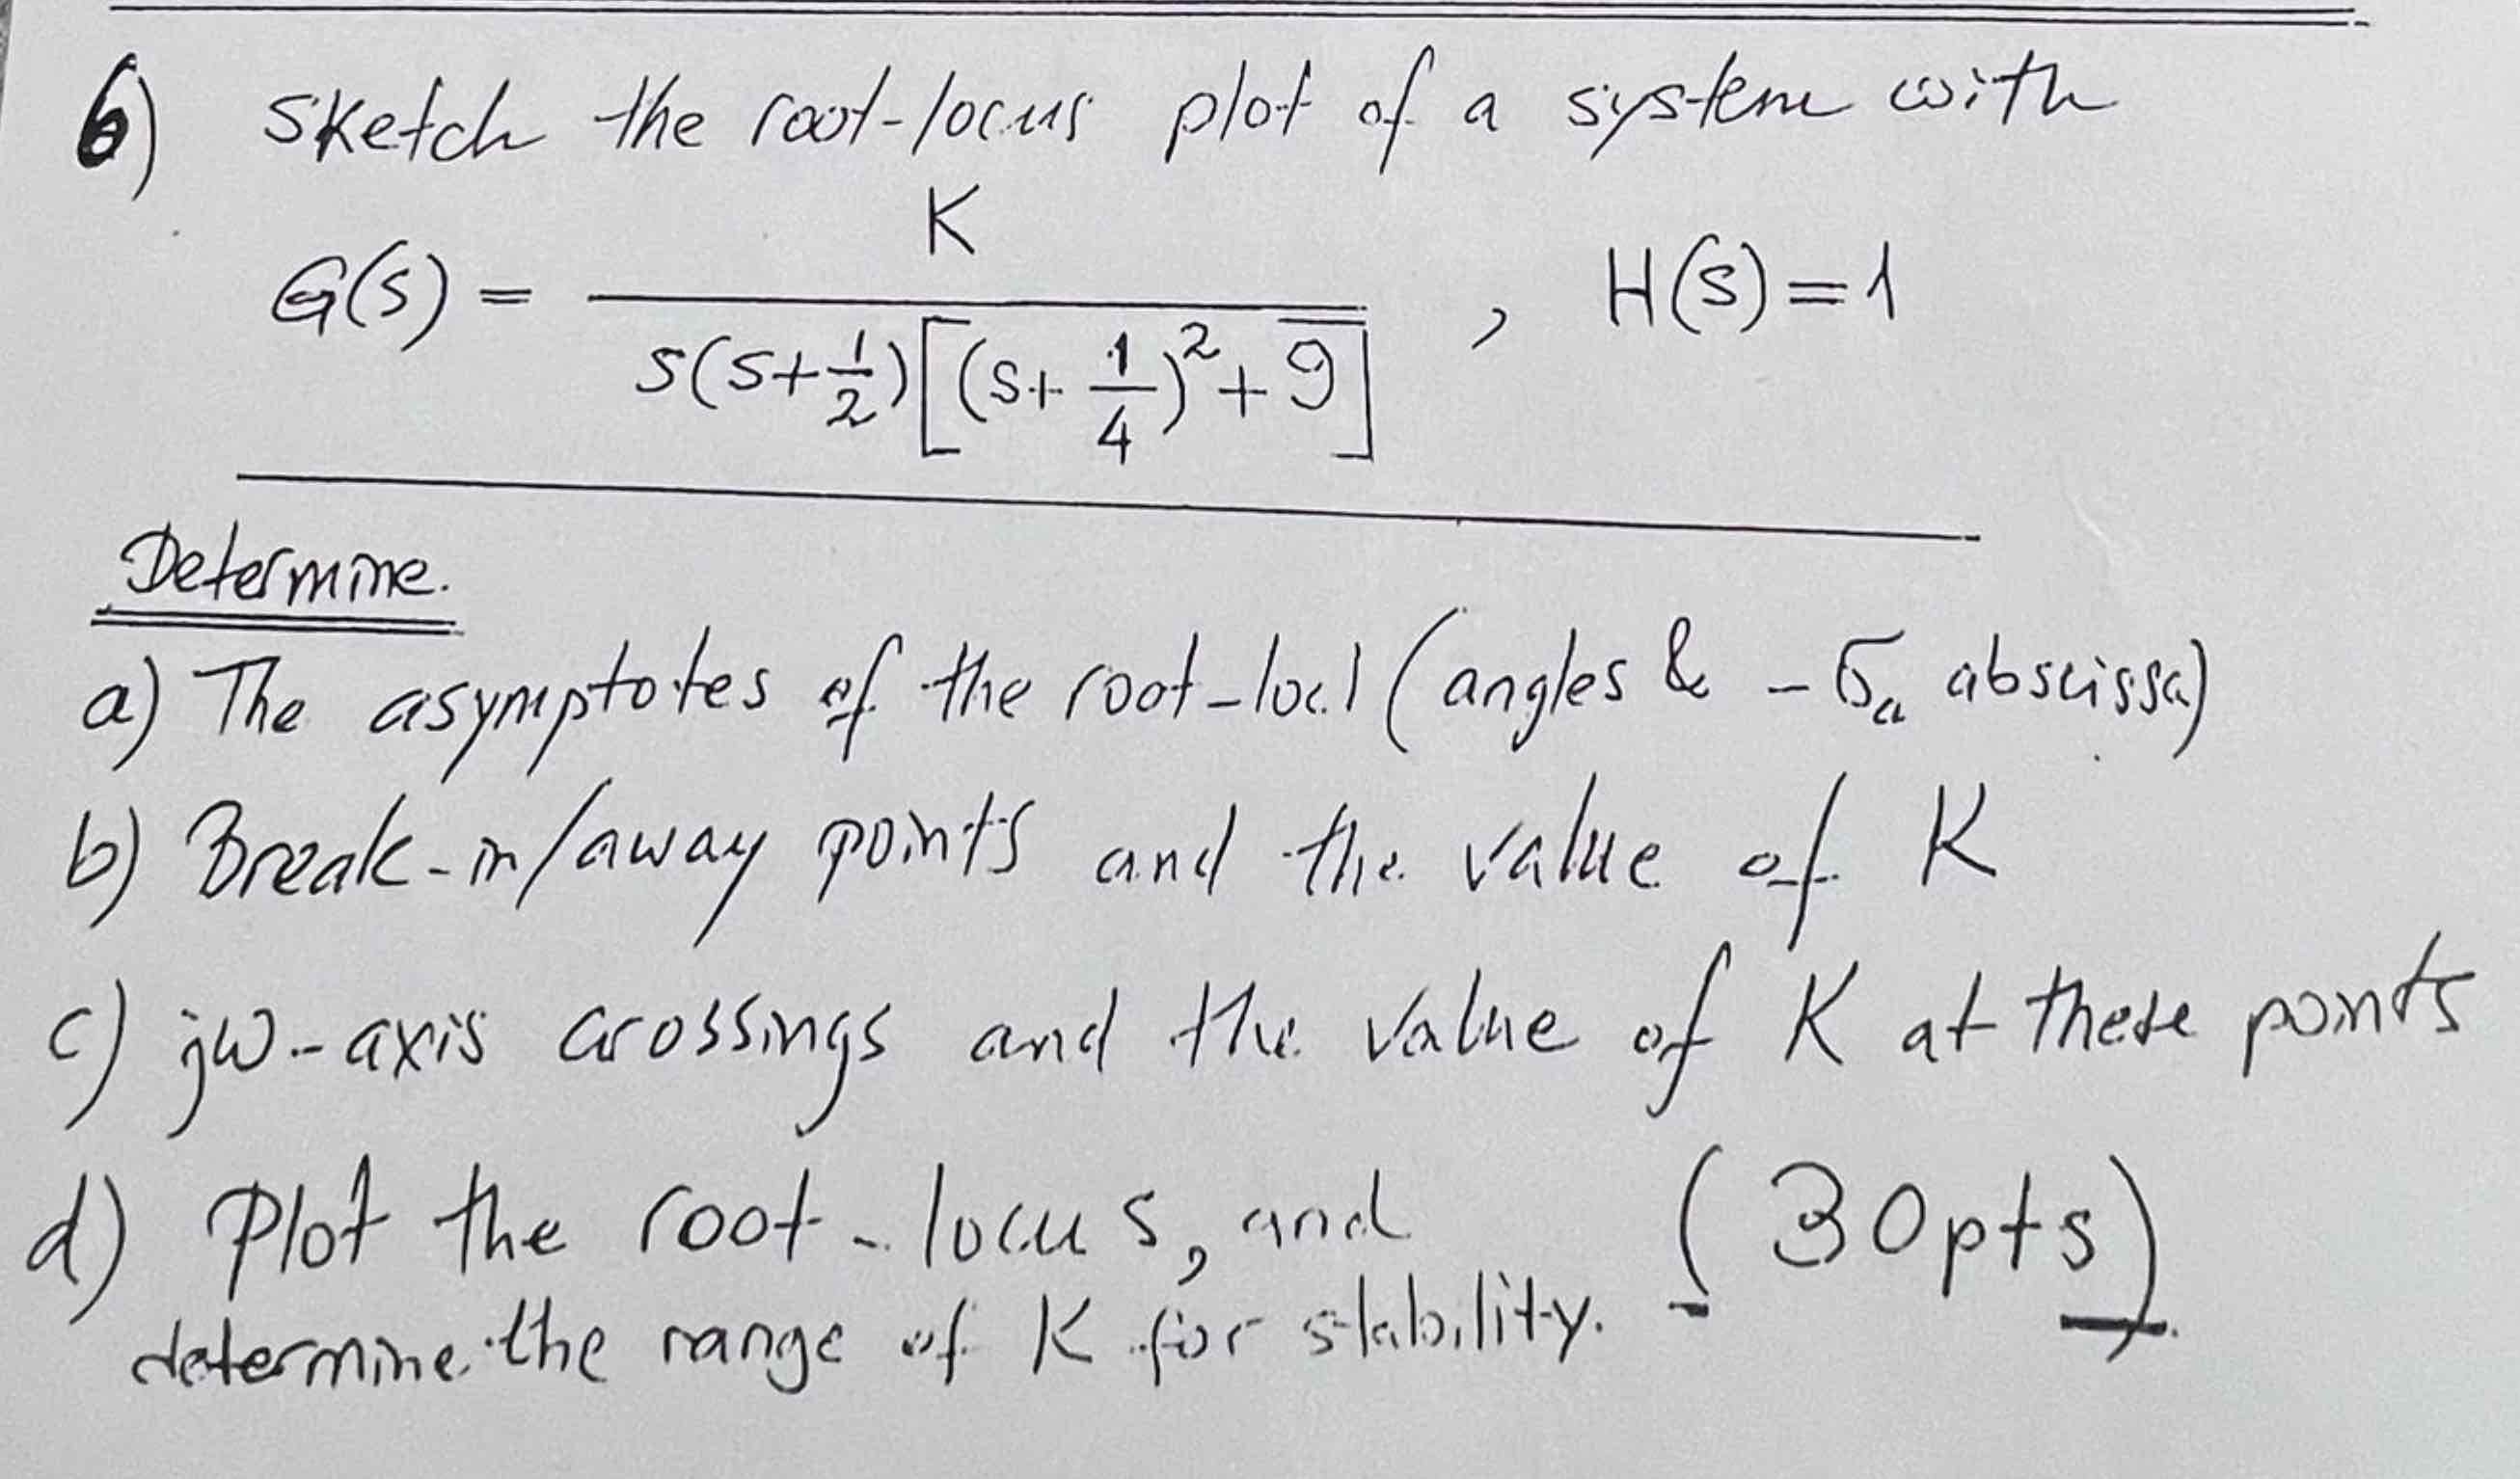 6) Sketch the root-locus plot of a system with
G(s) = K / s(s+1/2)[(s+1/4)²+9] , H(s)=1
Determine.
a) The asymptotes of the root-loci (angles & -σa abscissa)
b) Break-in/away points and the value of K
c) jω-axis crossings and the value of K at these points
d) Plot the root-locus, and (30pts)
determine the range of K for stability.